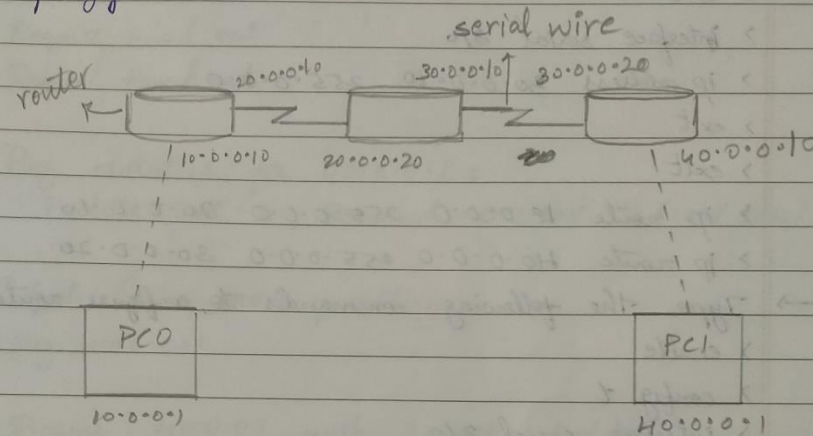 serial wire
router
20.0.0.10
30.0.0.10
30.0.0.20
10.0.0.10
20.0.0.20
40.0.0.10
PC0
PC1
10.0.0.1
40.0.0.1